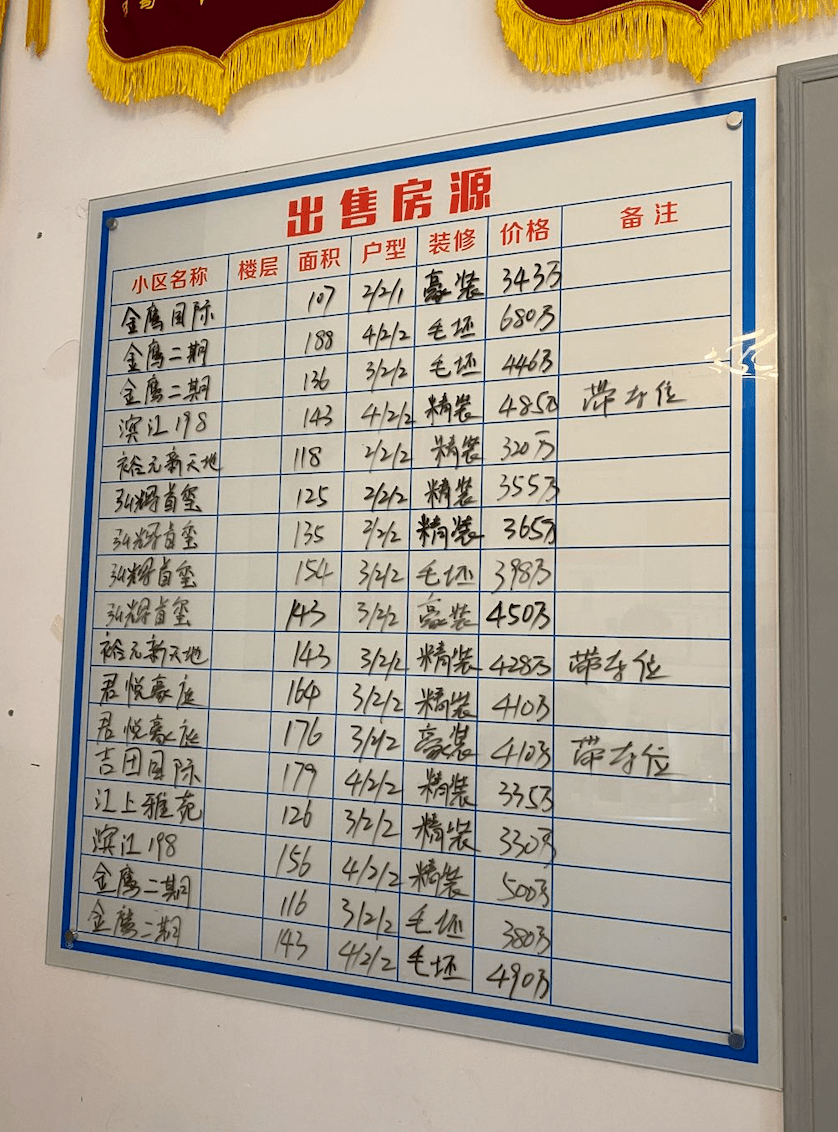 出售房源
小区名称 楼层 面积 户型 装修 价格 备注
金鹰国际 107 2/2/1 豪装 343万
金鹰二期 188 4/2/2 毛坯 680万
金鹰二期 136 3/2/2 毛坯 446万
滨江198 143 4/2/2 精装 485万 带车位
裕元新天地 118 2/2/2 精装 320万
弘辉首玺 125 2/2/2 精装 355万
弘辉首玺 135 2/2/2 精装 365万
弘辉首玺 154 3/2/2 毛坯 398万
弘辉首玺 143 3/2/2 豪装 450万
裕元新天地 143 3/2/2 精装 428万 带车位
君悦豪庭 164 3/2/2 精装 410万
君悦豪庭 176 3/2/2 豪装 410万 带车位
吉田国际 179 4/2/2 精装 335万
江上雅苑 126 3/2/2 精装 330万
滨江198 156 4/2/2 精装 500万
金鹰二期 116 3/2/2 毛坯 380万
金鹰二期 143 4/2/2 毛坯 490万